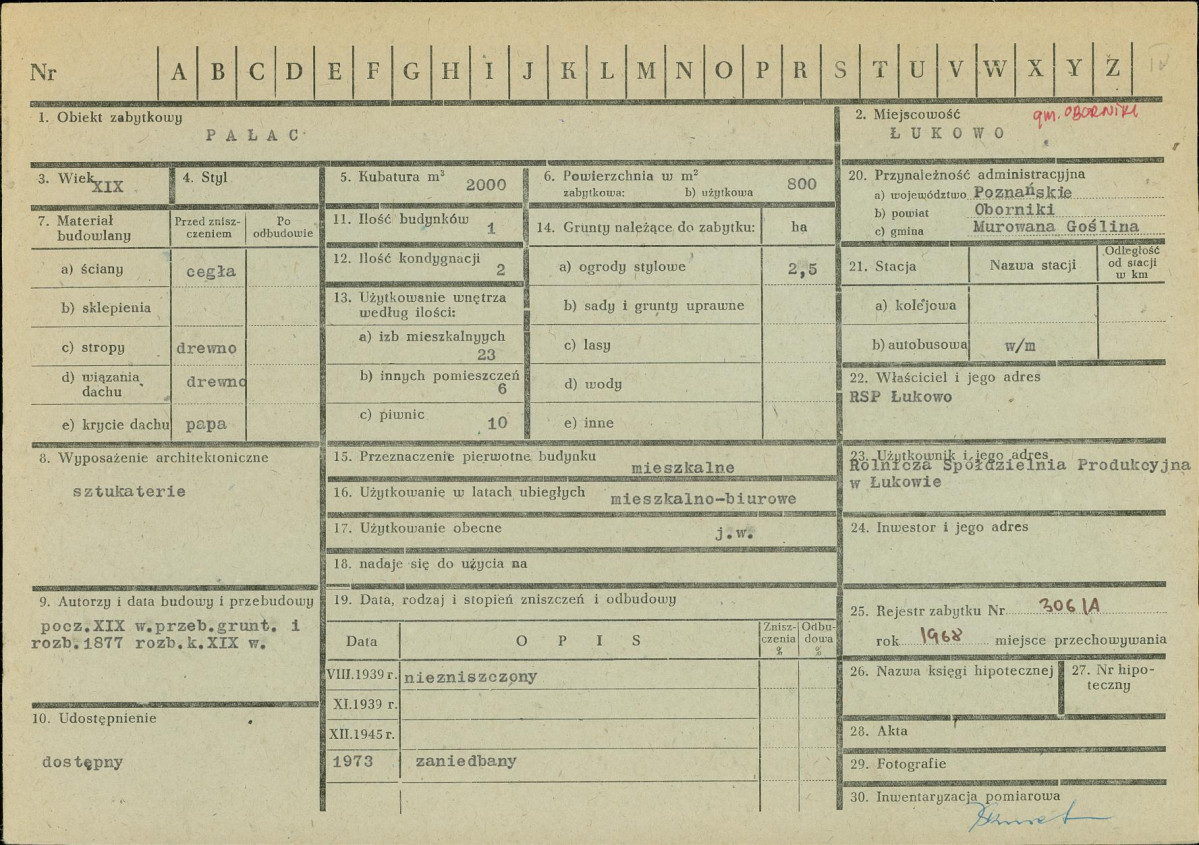 Nr A B C D E F G H I J K L M N O P R S T U V W X Y Z IV
1. Obiekt zabytkowy
PAŁAC
2. Miejscowość gm. OBORNIKI
ŁUKOWO
3. Wiek XIX
4. Styl
5. Kubatura m³ 2000
6. Powierzchnia w m²
zabytkowa: b) użytkowa 800
20. Przynależność administracyjna
a) województwo Poznańskie
b) powiat Oborniki
c) gmina Murowana Goślina
7. Materiał budowlany
Przed zniszczeniem
Po odbudowie
a) ściany cegła
b) sklepienia
c) stropy drewno
d) wiązania dachu drewno
e) krycie dachu papa
11. Ilość budynków 1
12. Ilość kondygnacji 2
13. Użytkowanie wnętrza
według ilości:
a) izb mieszkalnyych
23
b) innych pomieszczeń
6
c) piwnic 10
14. Grunty należące do zabytku: ha
a) ogrody stylowe 2,5
b) sady i grunty uprawne
c) lasy
d) wody
e) inne
21. Stacja Nazwa stacji
Odległość
od stacji
w km
a) kolejowa
b) autobusowa w/m
22. Właściciel i jego adres
RSP Łukowo
8. Wyposażenie architektoniczne
sztukaterie
15. Przeznaczenie pierwotne budynku
mieszkalne
16. Użytkowanie w latach ubiegłych mieszkalno-biurowe
17. Użytkowanie obecne j.w.
18. nadaje się do użycia na
23. Użytkownik i jego adres
Rolnicza Spółdzielnia Produkcyjna
w Łukowie
24. Inwestor i jego adres
9. Autorzy i data budowy i przebudowy
pocz.XIX w.przeb.grunt. i
rozb.1877 rozb.k.XIX w.
10. Udostępnienie
dostępny
19. Data, rodzaj i stopień zniszczeń i odbudowy
Data OPIS
Znisz-
czenia
%
Odbu-
dowa
%
VIII.1939 r. niezniszczony
XI.1939 r.
XII.1945 r.
1973 zaniedbany
25. Rejestr zabytku Nr 306/A
rok 1968 miejsce przechowywania
26. Nazwa księgi hipotecznej
27. Nr hipo-
teczny
28. Akta
29. Fotografie
30. Inwentaryzacja pomiarowa